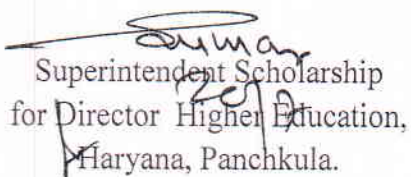 Superintendent Scholarship
for Director Higher Education,
Haryana, Panchkula.